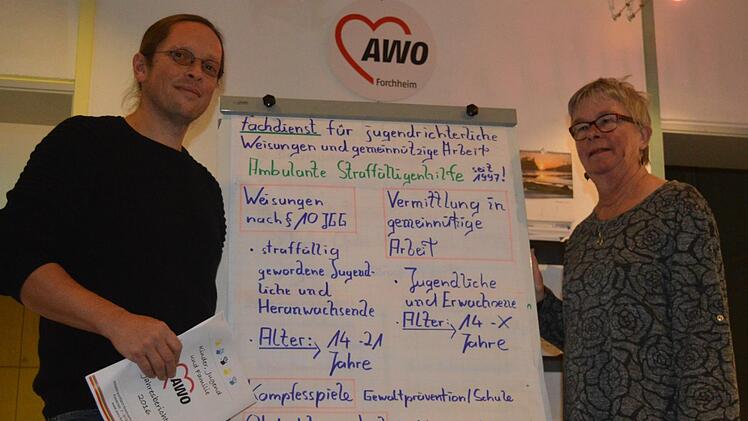 AWO
Forchheim
Fachdienst für jugendrichterliche
Weisungen und gemeinnützige Arbeit
Ambulante Straffälligenhilfe seit 1997!
Weisungen
nach § 10 JGG
• straffällig
gewordene Jugend-
liche und
Heranwachsende
• Alter: → 14 - 21
Jahre
Vermittlung in
gemeinnützige
Arbeit
• Jugendliche
und Erwachsene
• Alter: → 14 - X
Jahre
Kampfesspiele Gewaltprävention/Schule
Kinder, Jugend
und Familie
AWO
Jahresbericht
2016